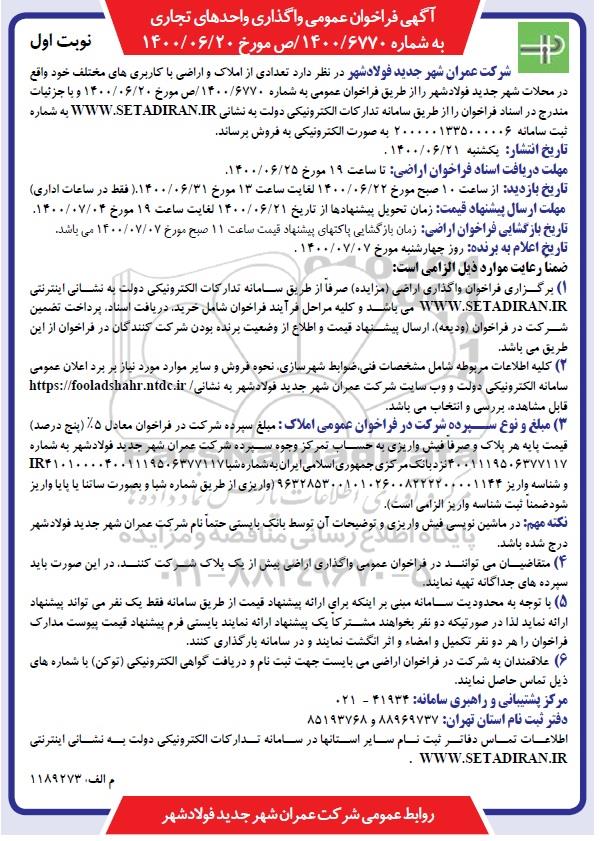 آگهی فراخوان عمومی واگذاری واحدهای تجاری
به شماره ۱۴۰۰/۶۷۷۰/ص مورخ ۱۴۰۰/۰۶/۲۰
نوبت اول
شرکت عمران شهر جدید فولادشهر در نظر دارد تعدادی از املاک و اراضی با کاربری های مختلف خود واقع
در محلات شهر جدید فولادشهر را از طریق فراخوان عمومی به شماره ۱۴۰۰/۶۷۷۰/ص مورخ ۱۴۰۰/۰۶/۲۰ و با جزئیات
مندرج در اسناد فراخوان را از طریق سامانه تدارکات الکترونیکی دولت به نشانی WWW.SETADIRAN.IR به شماره
ثبت سامانه ۲۰۰۰۰۰۱۳۳۵۰۰۰۰۰۶ به صورت الکترونیکی به فروش برساند.
تاریخ انتشار: یکشنبه ۱۴۰۰/۰۶/۲۱ .
مهلت دریافت اسناد فراخوان اراضی: تا ساعت ۱۹ مورخ ۱۴۰۰/۰۶/۲۵.
تاریخ بازدید: از ساعت ۱۰ صبح مورخ ۱۴۰۰/۰۶/۲۲ لغایت ساعت ۱۳ مورخ ۱۴۰۰/۰۶/۳۱.( فقط در ساعات اداری)
مهلت ارسال پیشنهاد قیمت: زمان تحویل پیشنهادها از تاریخ ۱۴۰۰/۰۶/۲۱ لغایت ساعت ۱۹ مورخ ۱۴۰۰/۰۷/۰۴.
تاریخ بازگشایی فراخوان اراضی: زمان بازگشایی پاکتهای پیشنهاد قیمت ساعت ۱۱ صبح مورخ ۱۴۰۰/۰۷/۰۷ می باشد.
تاریخ اعلام به برنده: روز چهارشنبه مورخ ۱۴۰۰/۰۷/۰۷ .
ضمناً رعایت موارد ذیل الزامی است:
۱) برگزاری فراخوان واگذاری اراضی (مزایده) صرفاً از طریق سامانه تدارکات الکترونیکی دولت به نشانی اینترنتی
WWW.SETADIRAN.IR می باشد و کلیه مراحل فرآیند فراخوان شامل خرید، دریافت اسناد، پرداخت تضمین
شرکت در فراخوان (ودیعه)، ارسال پیشنهاد قیمت و اطلاع از وضعیت برنده بودن شرکت کنندگان در فراخوان از این
طریق می باشد.
۲) کلیه اطلاعات مربوطه شامل مشخصات فنی،ضوابط شهرسازی، نحوه فروش و سایر موارد مورد نیاز بر برد اعلان عمومی
سامانه الکترونیکی دولت و وب سایت شرکت عمران شهر جدید فولادشهر به نشانی/ https://fooladshahr.ntdc.ir
قابل مشاهده، بررسی و انتخاب می باشد.
۳) مبلغ و نوع سپرده شرکت در فراخوان عمومی املاک : مبلغ سپرده شرکت در فراخوان معادل ۵٪ (پنج درصد)
قیمت پایه هر پلاک و صرفاً فیش واریزی به حساب تمرکز وجوه سپرده شرکت عمران شهر جدید فولادشهر به شماره
۴۰۰۱۱۱۹۵۰۶۳۷۷۱۱۷ نزد بانک مرکزی جمهوری اسلامی ایران به شماره شبا IR۴۱۰۱۰۰۰۰۴۰۰۱۱۱۹۵۰۶۳۷۷۱۱۷
و شناسه واریز ۹۶۳۲۸۵۳۰۰۱۰۱۰۲۶۰۰۸۲۲۲۲۰۰۰۰۱۱۴۴ (واریزی از طریق شماره شبا و بصورت ساتنا یا پایا واریز
شودضمناً ثبت شناسه واریز الزامی است).
نکته مهم: در ماشین نویسی فیش واریزی و توضیحات آن توسط بانک بایستی حتماً نام شرکت عمران شهر جدید فولادشهر
درج شده باشد.
۴) متقاضیان می توانند در فراخوان عمومی واگذاری اراضی بیش از یک پلاک شرکت کنند، در این صورت باید
سپرده های جداگانه تهیه نمایند.
۵) با توجه به محدودیت سامانه مبنی بر اینکه برای ارائه پیشنهاد قیمت از طریق سامانه فقط یک نفر می تواند پیشنهاد
ارائه نماید لذا در صورتیکه دو نفر بخواهند مشترکاً یک پیشنهاد ارائه نمایند بایستی فرم پیشنهاد قیمت پیوست مدارک
فراخوان را هر دو نفر تکمیل و امضاء و اثر انگشت نمایند و در سامانه بارگذاری کنند.
۶) علاقمندان به شرکت در فراخوان اراضی می بایست جهت ثبت نام و دریافت گواهی الکترونیکی (توکن) با شماره های
ذیل تماس حاصل نمایند.
مرکز پشتیبانی و راهبری سامانه: ۴۱۹۳۴ - ۰۲۱
دفتر ثبت نام استان تهران: ۸۸۹۶۹۷۳۷ و ۸۵۱۹۳۷۶۸
اطلاعات تماس دفاتر ثبت نام سایر استانها در سامانه تدارکات الکترونیکی دولت به نشانی اینترنتی
WWW.SETADIRAN.IR .
م الف: ۱۱۸۹۲۷۳
روابط عمومی شرکت عمران شهر جدید فولادشهر